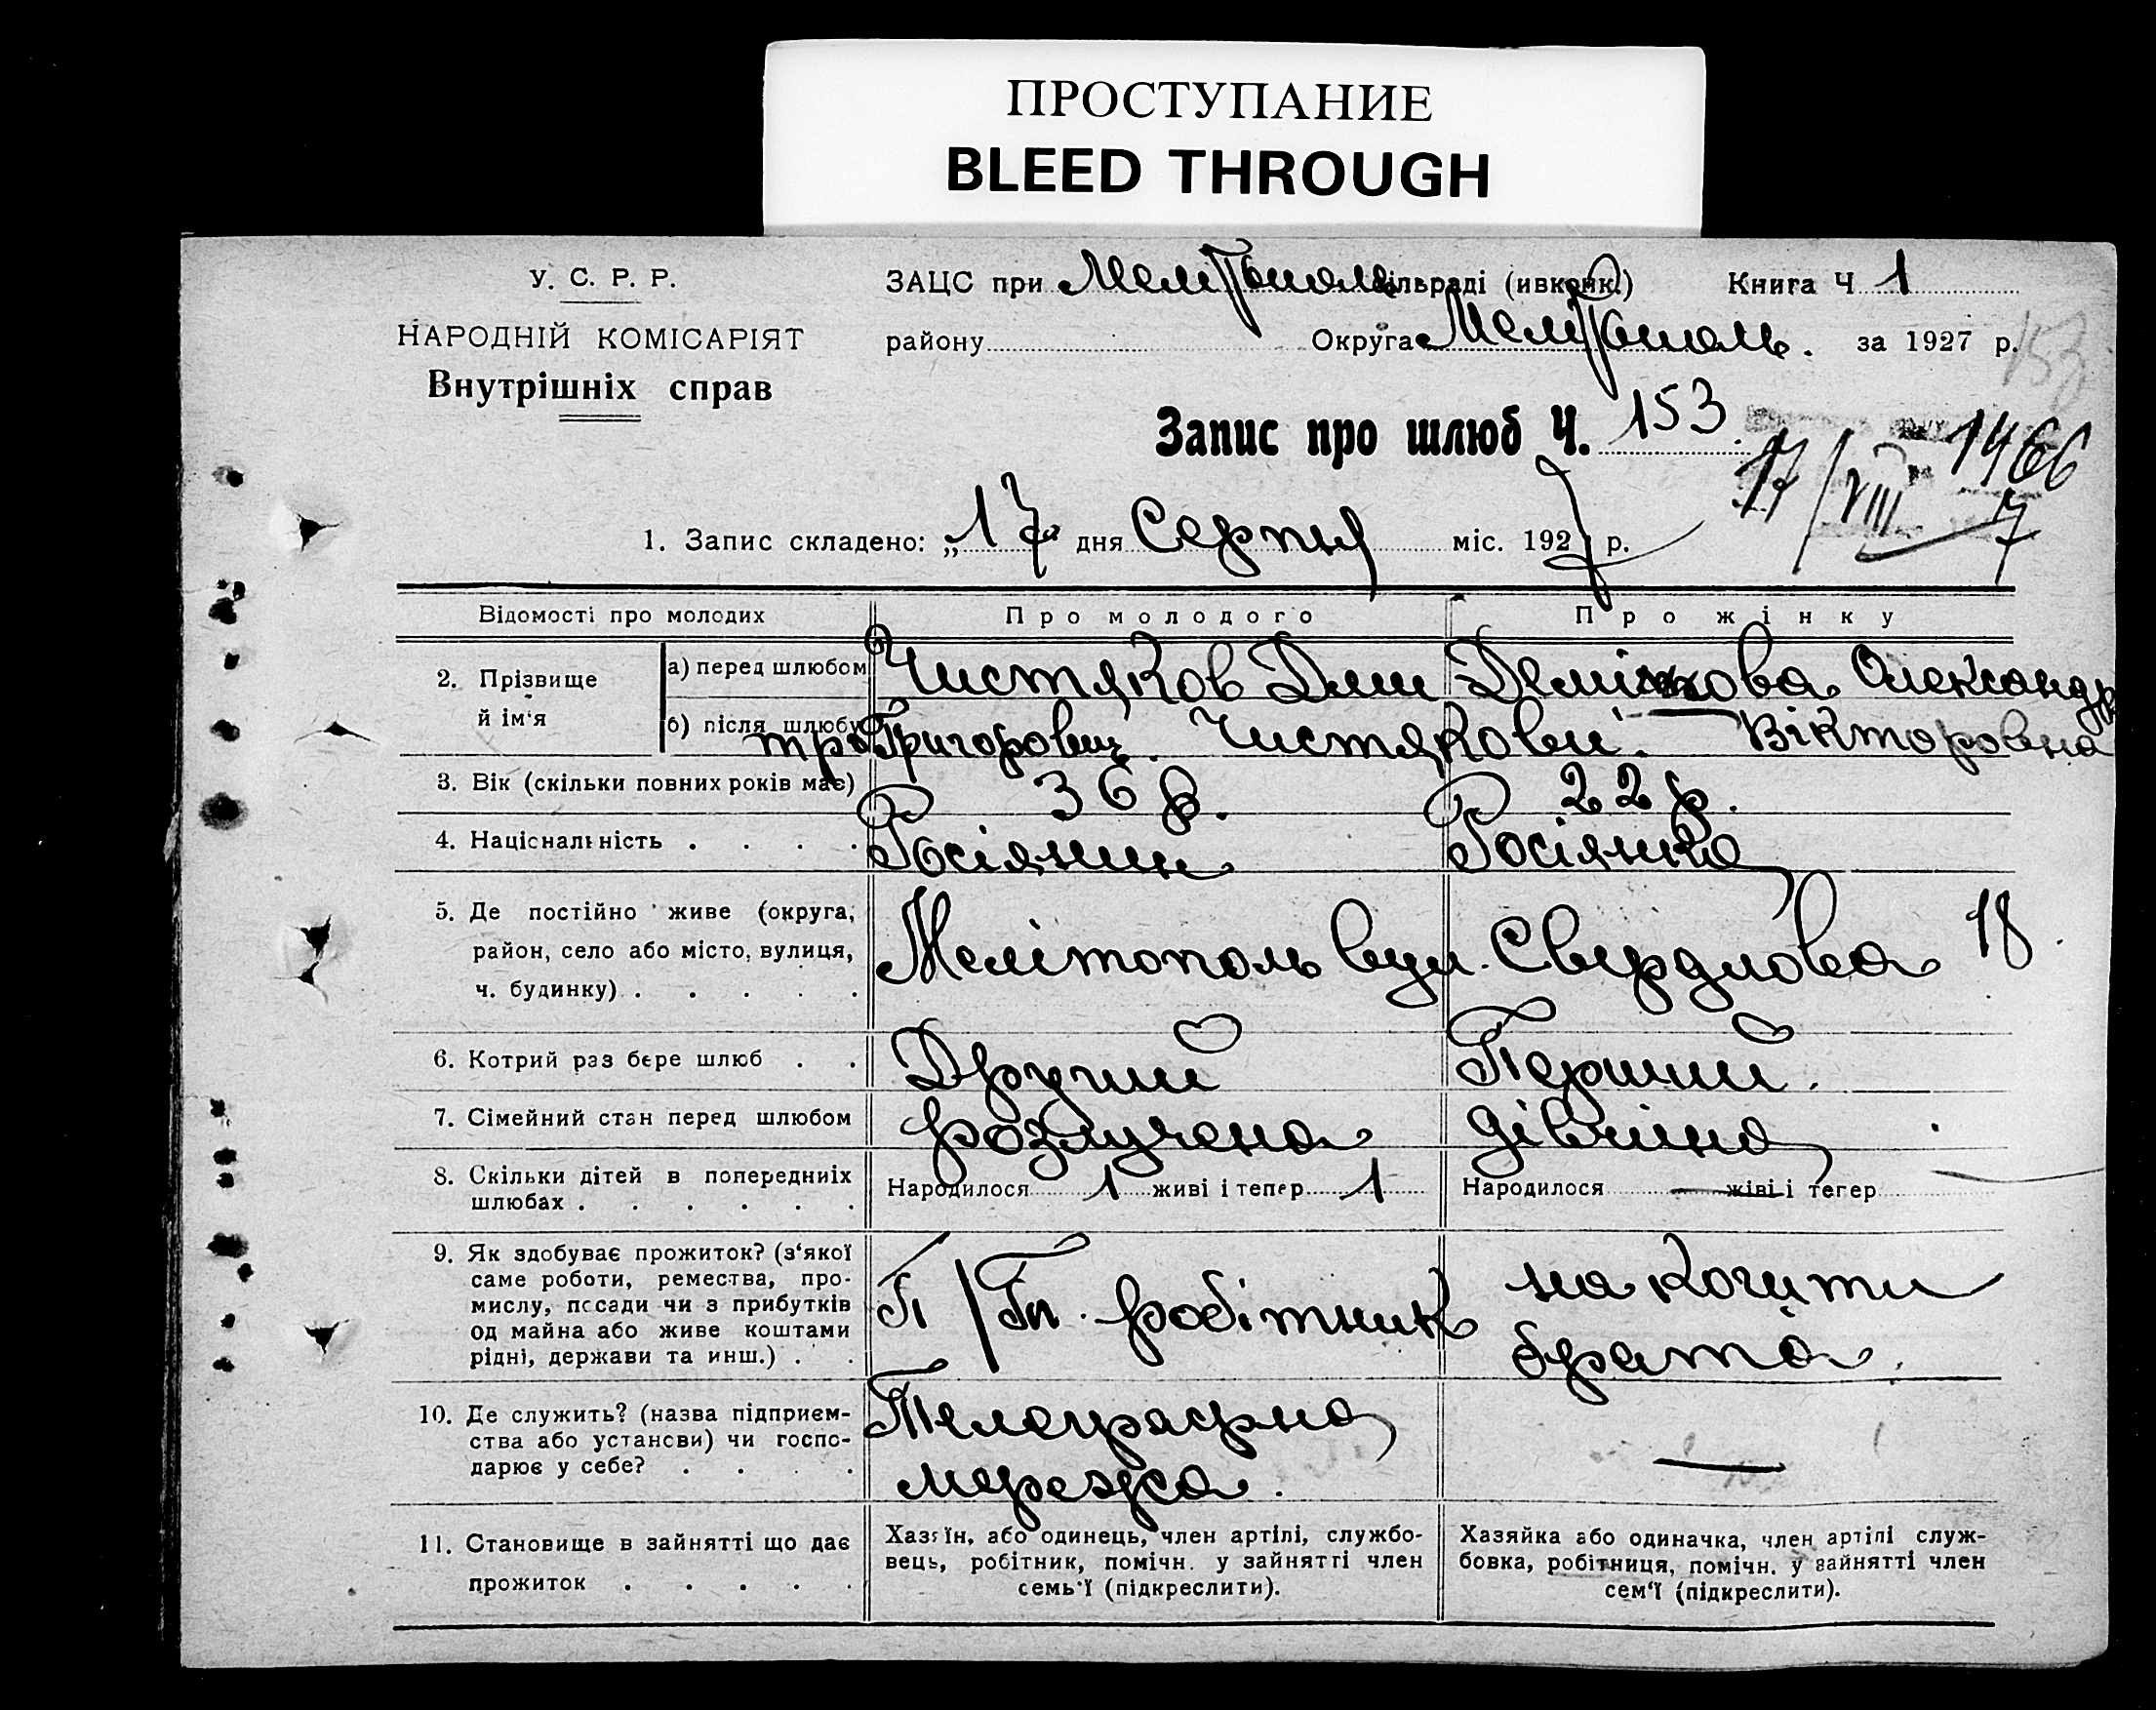 ПРОСТУПАНИЕ
BLEED THROUGH
У. С. Р. Р.
НАРОДНІЙ КОМІСАРІЯТ
Внутрішніх справ
ЗАЦС при Мелітополь сільраді (ивконк.) Книга Ч 1
району Округа Мелітополь. за 1927 р.
153
Запис про шлюб Ч. 153.
1466
17/VIII 7
1. Запис складено: „17" дня Серпня міс. 1927 р.
Відомості про молодих Про молодого Про жінку
2. Прізвище й ім'я
а) перед шлюбом Чистяков Дми Демі кова Олександр
б) після шлюбу тро Григорович. Чистякови. Вікторовна
3. Вік (скільки повних років має) 36 р. 22 р.
4. Національність . . . . Росіянин Росіянка
5. Де постійно живе (округа,
район, село або місто, вулиця,
ч. будинку) . . . . .
Мелітополь вул. Свердлова 18.
6. Котрий раз бере шлюб . . Другий Перший.
7. Сімейний стан перед шлюбом розлучена дівчина
8. Скільки дітей в попередниіх
шлюбах . . . . . .
Народилося 1 живі і тепер 1 Народилося — жіві і тегер
9. Як здобуває прожиток? (з'якої
саме роботи, ремества, про-
мислу, посади чи з прибутків
од майна або живе коштами
рідні, держави та инш.) . .
П/Тп. робітник
на кошти
брата.
10. Де служить? (назва підприєм-
ства або установи) чи госпо-
дарює у себе? . . . .
Телеграфна
мережа.
—
11. Становище в зайнятті що дає
прожиток . . . . .
Хазяїн, або одинець, член артілі, службо-
вець, робітник, помічн. у зайнятті член
семь'ї (підкреслити).
Хазяйка або одиначка, член артілі служ-
бовка, робітниця, помічн. у зайнятті член
сем'ї (підкреслити).